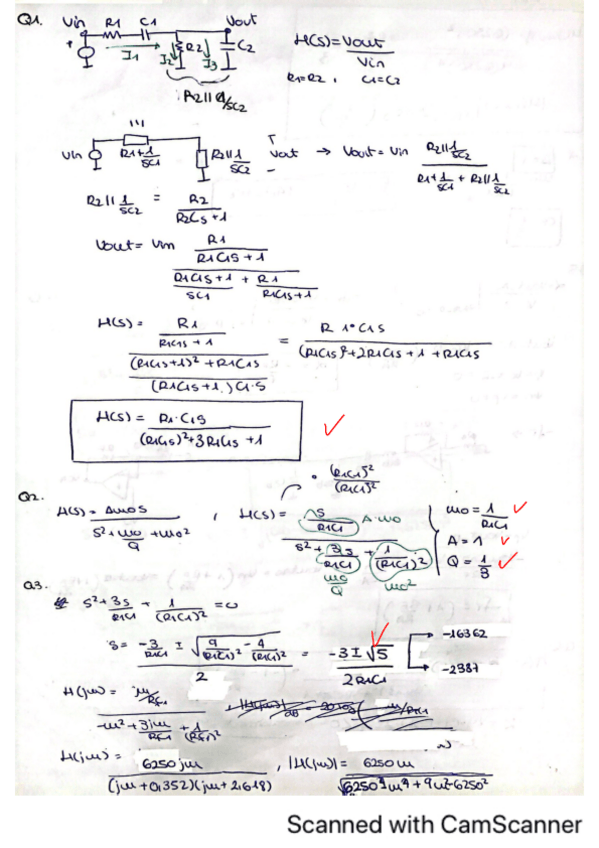 Q1. Vin R1 C1 Vout
H(s) = Vout / Vin
+ I1 I2 R2 I3 C2
R1=R2 , C1=C2
R2 || 1/sC2
Vin R1+1/sC1 R2||1/sC2 Vout → Vout = Vin (R2||1/sC2) / (R1+1/sC1 + R2||1/sC2)
R2 || 1/sC2 = R2 / (R2Cs+1)
Vout = Vin (R1 / (R1C1s+1)) / ((R1C1s+1)/sC1 + R1/(R1C1s+1))
H(s) = (R1 / (R1C1s+1)) / (((R1C1s+1)²+R1C1s) / ((R1C1s+1)C1·s)) = R1·C1s / ((R1C1s)²+2R1C1s+1+R1C1s)
H(s) = R1·C1s / ((R1C1s)²+3R1C1s+1) ✓
Q2. · (R1C1)² / (R1C1)²
H(s) = Aω0s / (s²+ω0/Q+ω0²) , H(s) = (s/R1C1) A·ω0 / (s²+3s/R1C1+1/(R1C1)²)
ω0/Q ω0²
ω0 = 1/R1C1 ✓
A = 1 ✓
Q = 1/3 ✓
Q3.
s²+3s/R1C1 + 1/(R1C1)² = 0
s = (-3/R1C1 ± √(9/(R1C1)² - 4/(R1C1)²)) / 2 = (-3±√5) / 2R1C1 ✓ → -16362
→ -2387
H(jω) = (jω/R1C1) / (-ω²+3jω/R1C1+1/(R1C1)²)
H(jω) = 6250jω / ((jω+0,352)(jω+2,618)) , |H(jω)| = 6250ω
Scanned with CamScanner